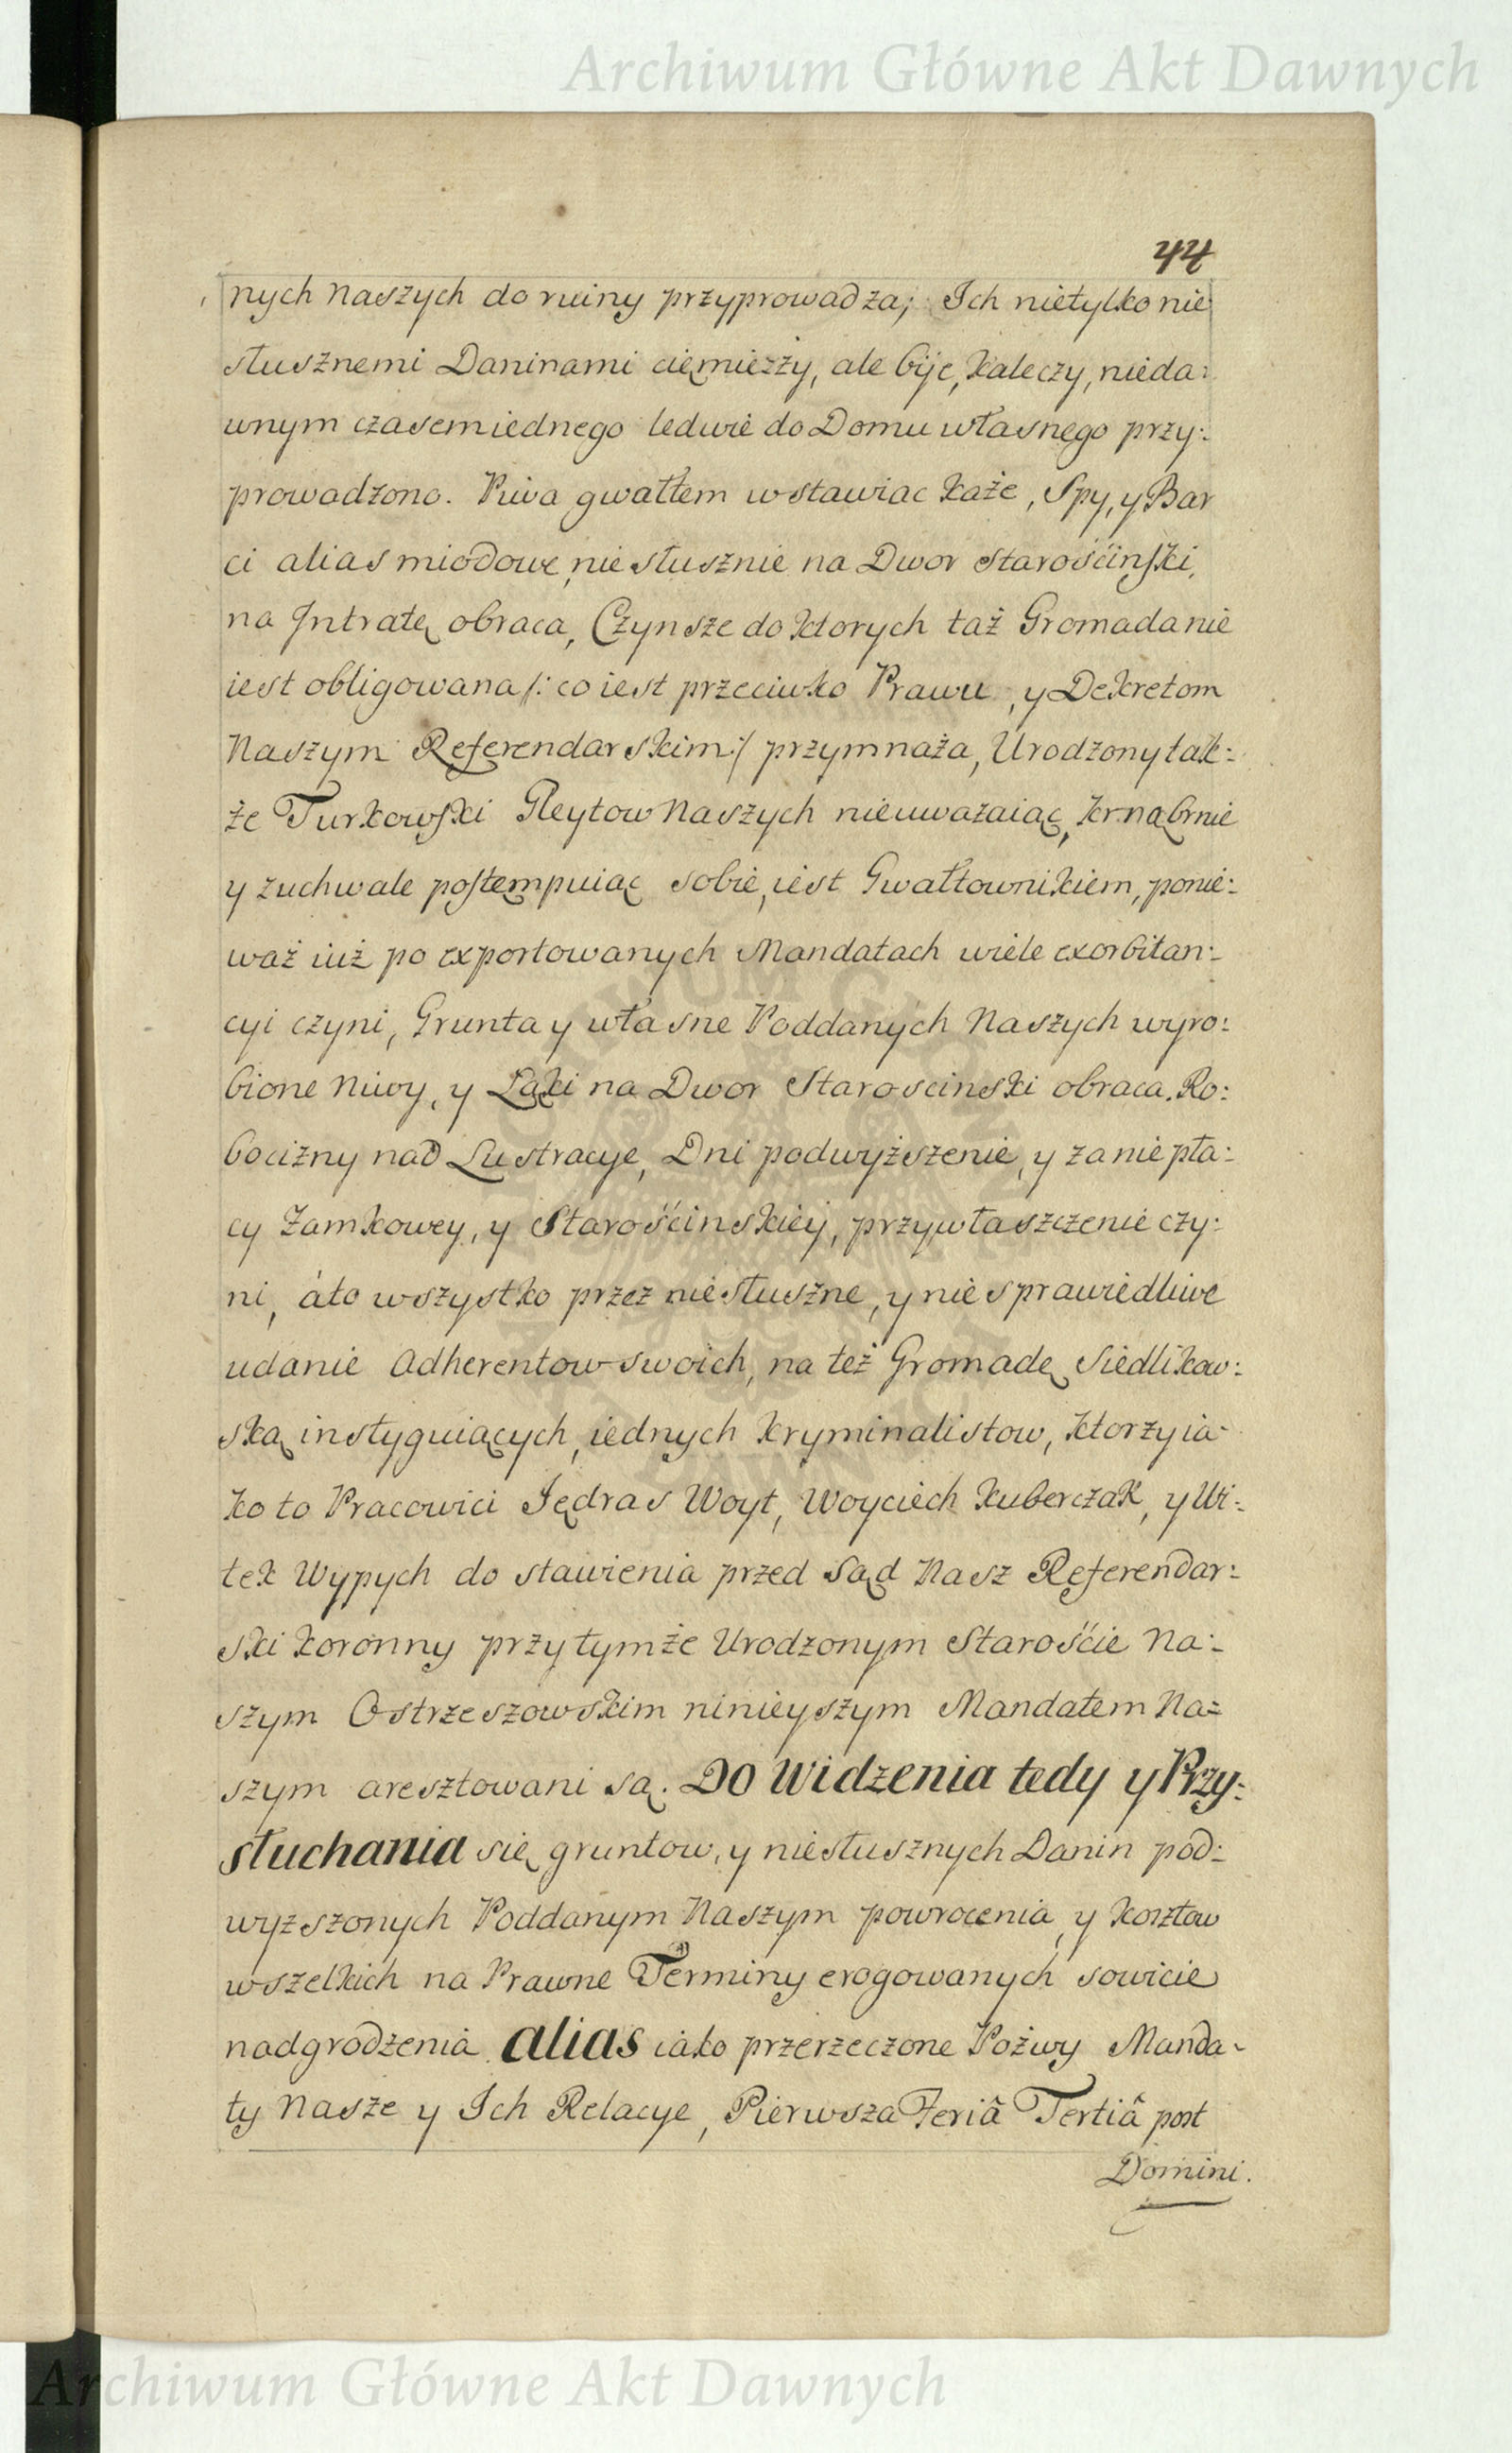 Archiwum Główne Akt Dawnych
44
nych naszych do ruiny przyprowadza; Ich nietylko nie
słusznemi Daninami cięmiezży, ale bije, kaleczy, nieda:
wnym czasem iednego ledwie do Domu własnego przy:
prowadzono. Piwa gwałtem wstawiac każe, Spy, y Bar
ci alias miodowe, niesłusznie na Dwor Starościnski,
na Intratę obraca, Czynsze do ktorych taż Gromada nie
iest obligowana /: co iest przeciwko Prawu, y Dekretom
Naszym Referendarskim :/ przymnaża, Urodzony tak:
że Turkowski Gleytow Naszych nieuważaiąc, krnąbrnie
y zuchwale postempuiąc sobie, iest Gwałtownikiem, ponie:
waż iuż po exportowanych Mandatach wiele exorbitan:
cyi czyni, Grunta y własne Poddanych Naszych wyro:
bione Niwy, y Łąki na Dwor Starościnski obraca. Ro:
bocizny nad Lustracye, Dni podwyższenie, y zanie pła:
cy Zamkowey, y Starościnskiey, przywłaszczenie czy:
ni, áto wszystko przez niesłuszne, y niesprawiedliwe
udanie Adherentow swoich, na też Gromadę Siedlikow:
ską instyguiących, iednych kryminalistow, ktorzy ia-
ko to Pracowici Jędras Woyt, Woyciech Kuberczak, y Wi:
tek Wypych do stawienia przed Sąd Nasz Referendar:
ski koronny przy tymże Urodzonym Staroście Na:
szym Ostrzeszowskim ninieyszym Mandatem Na=
szym aresztowani są. Do Widzenia tedy y Przy:
słuchania się gruntow, y niesłusznych Danin pod:
wyzszonych Poddanym Naszym powrocenia, y kosztow
wszelkich na Prawne Terminy erogowanych sowicie
nadgrodzenia. alias iako przerzeczone Pozwy Manda-
ty Nasze y Ich Relacye, Pierwsza Feriâ Tertiâ post
Domini.
Archiwum Główne Akt Dawnych